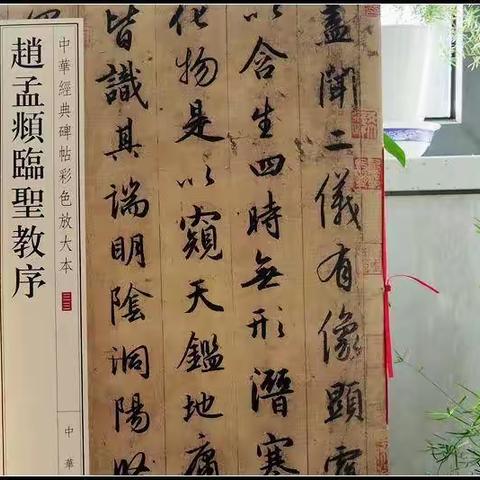 蓋聞二儀有像顯覆
以含生四時無形潛寒
化物是以窺天鑑地庸
皆識其端明陰洞陽賢
中華經典碑帖彩色放大本
中華
趙孟頫臨聖教序